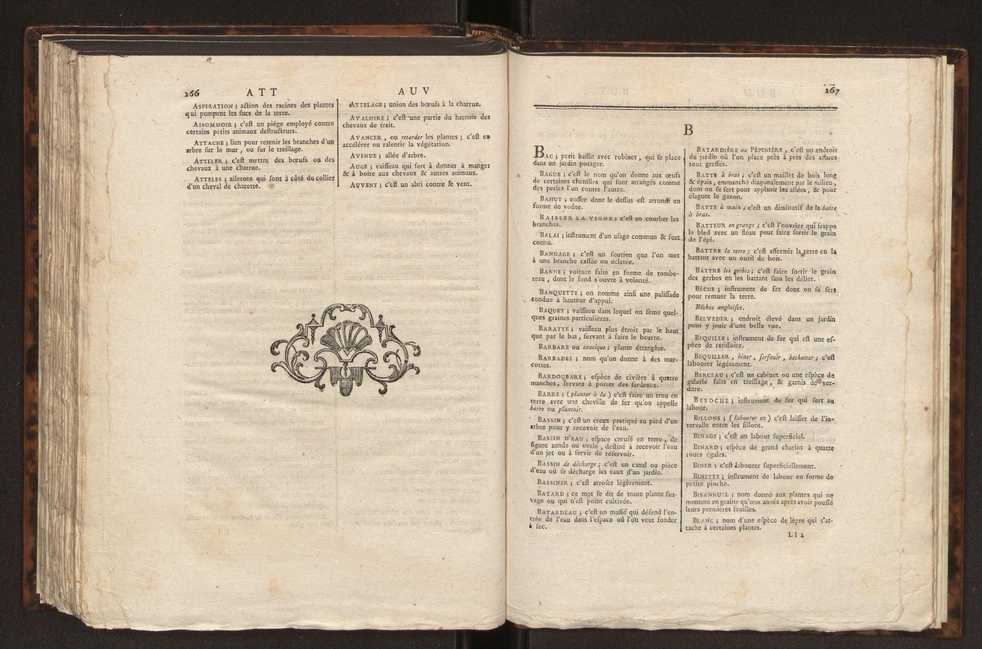 266 ATT AUV
ASPIRATION ; action des racines des plantes
qui pompent les sucs de la terre.
ASSOMMOIR ; c'est un piége employé contre
certains petits animaux destructeurs.
ATTACHE ; lien pour retenir les branches d'un
arbre sur le mur, ou sur le treillage.
ATTELER ; c'est mettre des bœufs ou des
chevaux à une charrue.
ATTELES ; ailerons qui sont à côté du collier
d'un cheval de charette.
ATTELAGE ; union des bœufs à la charrue.
AVALOIRE ; c'est une partie du harnois des
chevaux de trait.
AVANCER, ou retarder les plantes ; c'est en
accélérer ou ralentir la végétation.
AVENUE ; allée d'arbre.
AUGE ; vaisseau qui sert à donner à manger
& à boire aux chevaux & autres animaux.
AUVENT ; c'est un abri contre le vent.
267
B
BAC ; petit bassin avec robinet, qui se place
dans un jardin potager.
BAGUE ; c'est le nom qu'on donne aux œufs
de certaines chenilles qui sont arrangés comme
des perles l'un contre l'autre.
BAHUT ; coffre dont le dessus est arrondi en
forme de voûte.
BAISSER LA VIGNE ; c'est en courber les
branches.
BALAI ; instrument d'un usage commun & fort
connu.
BANDAGE ; c'est un soutien que l'on met
à une branche cassée ou éclatée.
BANNE ; voiture faite en forme de tombe-
reau, dont le fond s'ouvre à volonté.
BANQUETTE ; on nomme ainsi une palissade
conduite à hauteur d'appui.
BAQUET ; vaisseau dans lequel on sème quel-
ques graines particulières.
BARATTE ; vaisseau plus étroit par le haut
que par le bas, servant à faire le beurre.
BARBARE ou exotique ; plante étrangère.
BARBADES ; nom qu'on donne à des mar-
cottes.
BARDOUBARS ; espèce de civière à quatre
manches, servant à porter des fardeaux.
BARRE ; (planter à la) c'est faire un trou en
terre avec une cheville de fer qu'on appelle
barre ou plantoir.
BASSIN ; c'est un creux pratiqué au pied d'un
arbre pour y recevoir de l'eau.
BASSIN D'EAU ; espace creusé en terre, de
figure ronde ou ovale, destiné à recevoir l'eau
d'un jet ou à servir de réservoir.
BASSIN de décharge ; c'est un canal ou pièce
d'eau où se décharge les eaux d'un jardin.
BASSINER ; c'est arroser légérement.
BATARD ; ce mot se dit de toute plante sau-
vage ou qui n'est point cultivée.
BATARDEAU ; c'est un massif qui défend l'en-
trée de l'eau dans l'espace où l'on veut fonder
à sec.
BATARDIÈRE ou PÉPINIÈRE, c'est un endroit
du jardin où l'on place près à près des arbres
tout greffés.
BATTE à bras ; c'est un maillet de bois long
& épais, emmanché diagonalement par le milieu,
dont on se sert pour applanir les allées, & pour
élaguer le gazon.
BATTE à main ; c'est un diminutif de la batte
à bras.
BATTEUR en grange ; c'est l'ouvrier qui frappe
le bled avec un fléau pour faire sortir le grain
de l'épi.
BATTRE la terre ; c'est affermir la terre en la
battant avec un outil de bois.
BATTRE les gerbes ; c'est faire sortir le grain
des gerbes en les battant sans les délier.
BÊCHE ; instrument de fer dont on se sert
pour remuer la terre.
Bêches angloises.
BELVEDER ; endroit élevé dans un jardin
pour y jouir d'une belle vue.
BEQUILLE ; instrument de fer qui est une es-
pèce de ratissoire.
BEQUILLER, biner, serfouir, bechotter ; c'est
labourer légérement.
BERCEAU ; c'est un cabinet ou une espèce de
galerie faits en treillage, & garnis de ver-
dure.
BESOCHE ; instrument de fer qui sert au
labour.
BILLONS ; (labourer en) c'est laisser de l'in-
tervalle entre les sillons.
BINAGE ; c'est un labour superficiel.
BINARD ; espèce de grand chariot à quatre
roues égales.
BINER ; c'est labourer superficiellement.
BINETTE ; instrument de labour en forme de
petite pioche.
BISANNUEL ; nom donné aux plantes qui ne
montent en graine qu'une année après avoir poussé
leurs premières feuilles.
BLANC ; nom d'une espèce de lèpre qui s'at-
tache à certaines plantes.
Ll 2